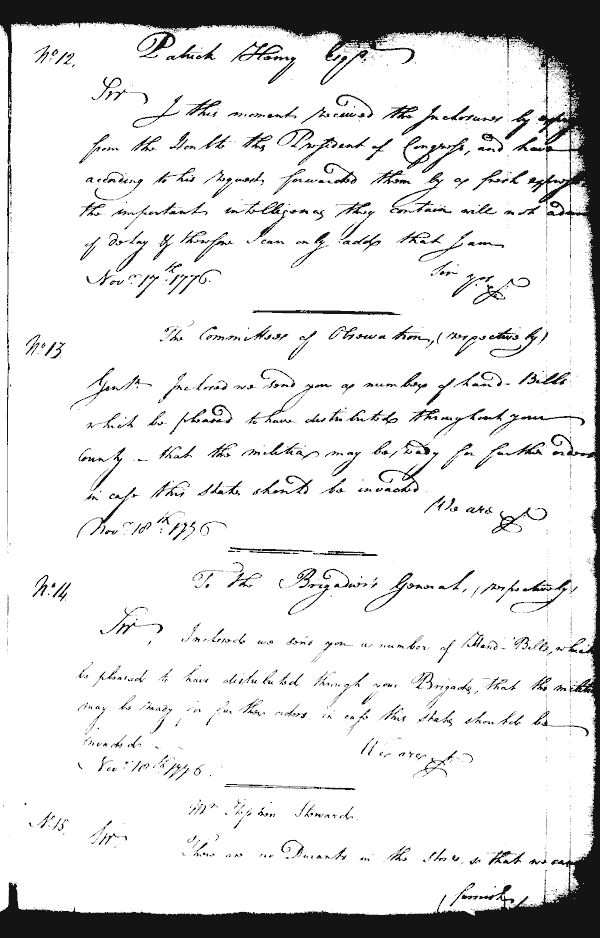 No. 12. Patrick Henry Esqr.
Sir
I this moment received the Inclosures by express
from the Honble the President of Congress, and have
according to his request forwarded them by a fresh express
the important intelligence they contain will not admit
of delay & therefore I can only add that I am
Sir yrs. &c
Novr. 17th. 1776.
No. 13. The Committees of Observation, (respectively)
Gentn. Inclosed we send you a number of hand-Bills
which be pleased to have distributed throughout your
County - that the militia may be ready for further orders
in case this State should be invaded.
We are &c
Novr. 18th 1776
No. 14 To the Brigadier's General, (respectively)
Sir, Inclosed we send you a number of Hand-Bells, which
be pleased to have distributed through your Brigade, that the militia
may be ready for further orders, in case this State should be
invaded -
We are &c
Novr. 18th 1776.
Mr. Stephen Steward.
No. 15. Sir.
There are no Ducants in the store, so that we can
(furnish)